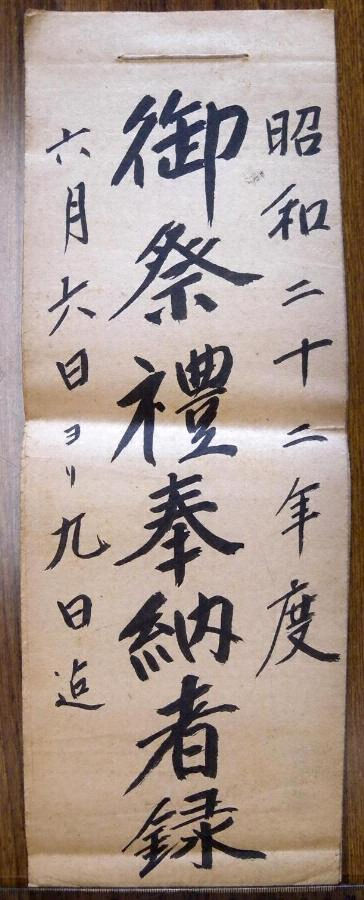 昭和二十二年度
御祭禮奉納者録
六月六日ヨリ九日迠